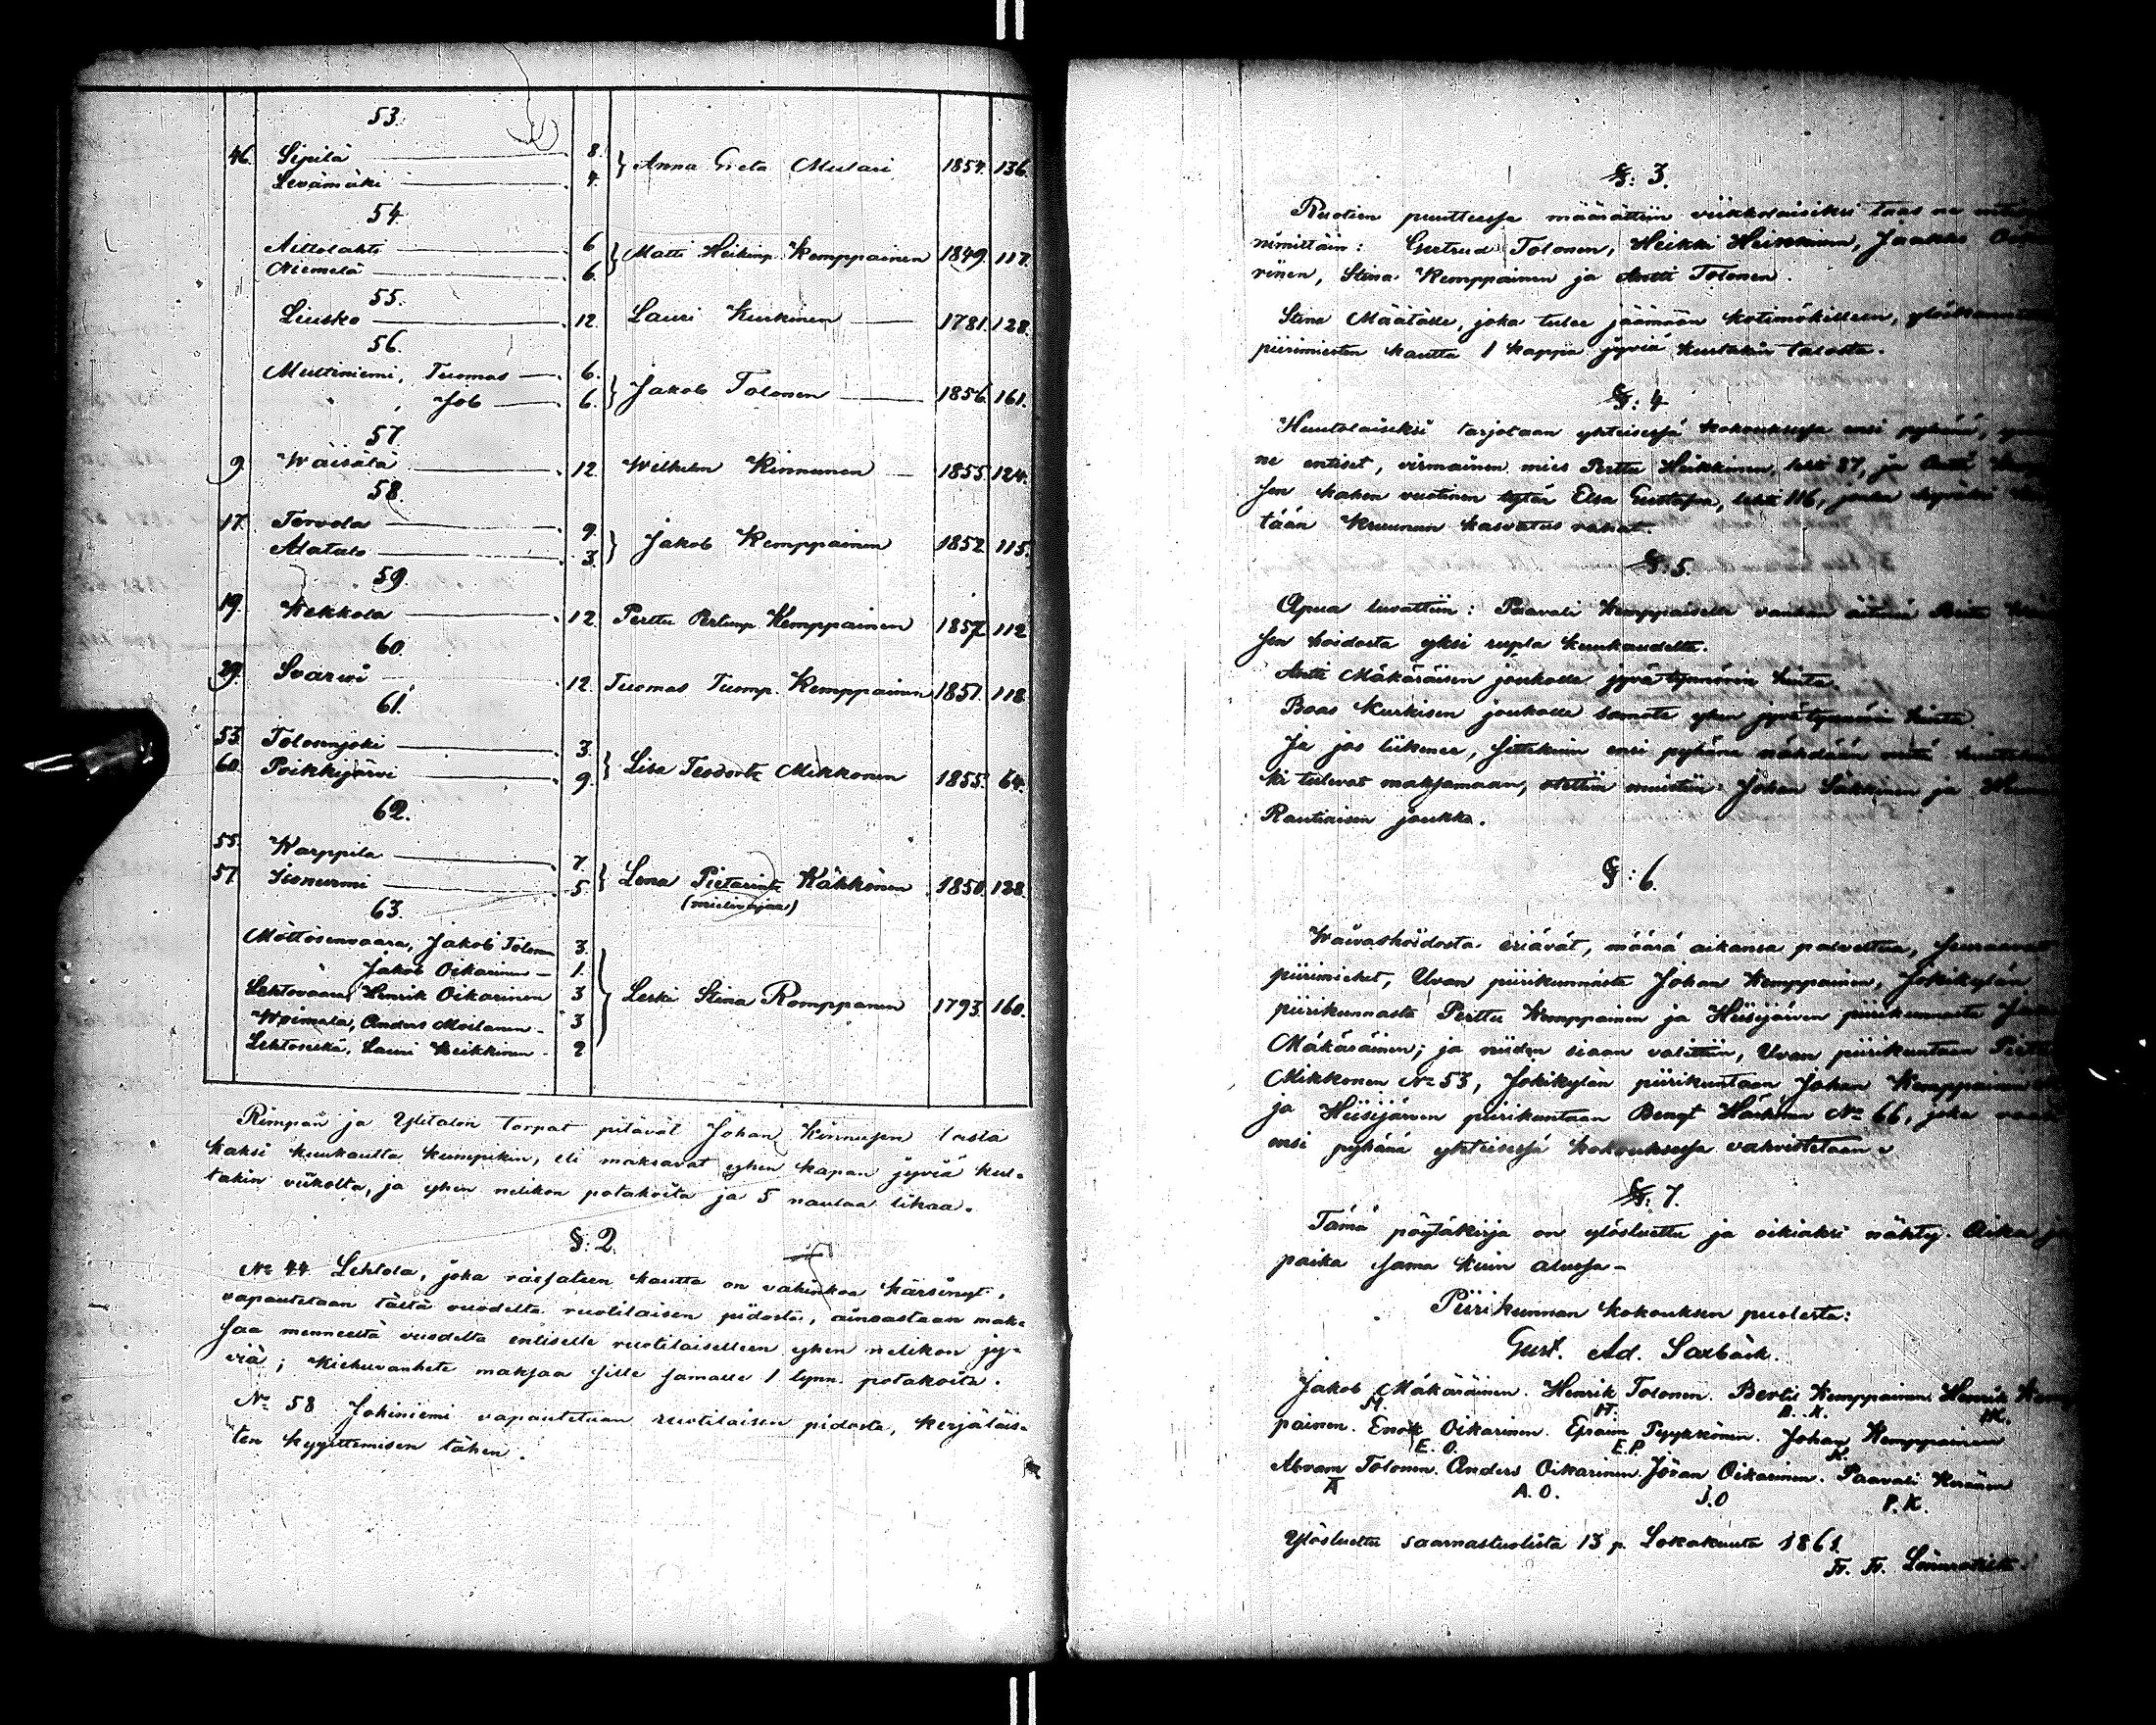 53.
46. Sipilä 8. } Anna Greta Mulari 1854. 136.
Levämäki 4.
54.
Aittolahti 6 } Matti Heikinp. Kemppainen 1849. 117.
Niemelä 6.
55.
Liusko 12. Lauri Kurkinen 1781. 128.
56.
Multiniemi, Tuomas 6. } Jakob Tolonen 1856. 161.
Job 6.
57.
9. Wäisälä 12. Wilhelm Kinnunen 1855. 124.
58.
17. Tervola 9. } Jakob Kemppainen 1852. 115.
Alatalo 3.
59.
19. Kekkola 12. Perttu Pertunp. Kemppainen 1857. 112
60.
29. Svarwi 12. Tuomas Tuomp. Kemppainen 1851. 118
61.
53. Tolosenjoki 3. } Lisa Teodorintr Mikkonen 1855. 64.
60. Poikkijärvi 9.
62.
55. Karppila 7. } Lena Pietarintr Käkkönen 1850. 128.
57. Jsonurmi 5. (mielivajaa)
63.
Möttösenvaara, Jakob Tolonen 3.
Jakob Oikarinen 1.
Lehtovaara, Henrik Oikarinen 3 } Leski Stina Romppanen 1793. 160.
Woimala, Anders Moilanen 3
Lehtoselkä, Lauri Heikkinen 2
Rimpan ja Ylitalon torpat pitävät Johan Kinnusen lasta
kaksi kuukautta kumpikin, eli maksavat yhen kapan jyviä kul-
takin viikolta, ja yhen nelikon potakoita ja 5 naulaa lihaa.
§: 2.
No 44. Lehtola, joka räesateen kautta on vahinkoa kärsinyt,
vapautetaan tältä vuodelta ruotilaisen pidosta, ainoastaan mak-
saa menneeltä vuodelta entiselle ruotilaiselleen yhen nelikon jy-
viä; Kiehuvanhete maksaa sille samalle 1 tynn. potakoita.
No 58 Jokiniemi vapautetaan ruotilaisen pidosta, kerjäläis-
ten kyyittemisen tähen.
§: 3.
Ruotien puutteessa määrättiin viikkolaisiksi taas ne
nimittäin: Gertrud Tolonen, Heikki Heikkinen, Jaakko
rinen, Stina Kemppainen ja Antti Tolonen.
Stina Määtälle, joka tulee jäämään kotimökilleen,
piirimiesten kautta 1 kappa jyviä kustakin talosta.
§: 4
Huutolaiseksi tarjotaan yhteisessä kokouksessa ensi pyhänä,
ne entiset, virmainen mies Perttu Heikkinen, lehti 87, ja Antti
sen kahen vuotinen tytär Elsa Gustafva, lehti 116, jonka hyväksi
tään Kruunun kasvatus rahat.
§: 5.
Apua luvattiin: Paavali Kemppaiselle vanhan äitinsä Brita
sen hoidosta yksi rupla kuukaudelta.
Antti Mäkäräisen joukolle jyvä tynnörin hinta.
Boas Kurkisen joukolle samote yhen jyvätynnörin hinta.
Ja jos liikenee, sittekuin ensi pyhänä nähdään mitä
ki tulevat maksamaan, otettiin muistiin: Johan Säkkinen ja
Rautiaisen joukko.
§: 6.
Waivashoidosta eriävät, määrä aikansa palveltua, seuraavat
piirimiehet, Uvan piirikunnasta Johan Kemppainen, Jokikylän
piirikunnasta Perttu Kemppainen ja Hiisijärven piirikunnasta
Mäkäräinen; ja niiden siaan valittiin, Uvan piirikuntaan
Mikkonen No 53, Jokikylän piirikuntaan Johan Kemppainen
ja Hiisijärven piirikuntaan Bengt Härkönen No 66, joka
ensi pyhänä yhteisessä kokouksessa vahvistetaan.
§: 7.
Tämä pöytäkirja on ylösluettu ja oikiaksi nähty. Aika ja
paika sama kuin alussa-
Piirikunnan kokouksen puolesta:
Gust. Ad. Saxbäck.
Jakob Mäkäräinen. Henrik Tolonen. Bertil Kemppainen. Henrik Kemp-
M. H. B. K. HK.
painen. Enok Oikarinen. Efraim Pyykkönen. Johan Kemppainen
E. O. E.P. K.
Abram Tolonen. Anders Oikarinen. Jöran Oikarinen. Paavali Keränen
A A. O. J. O P. K.
Ylösluettu saarnastuolista 13 p. Lokakuuta 1861.